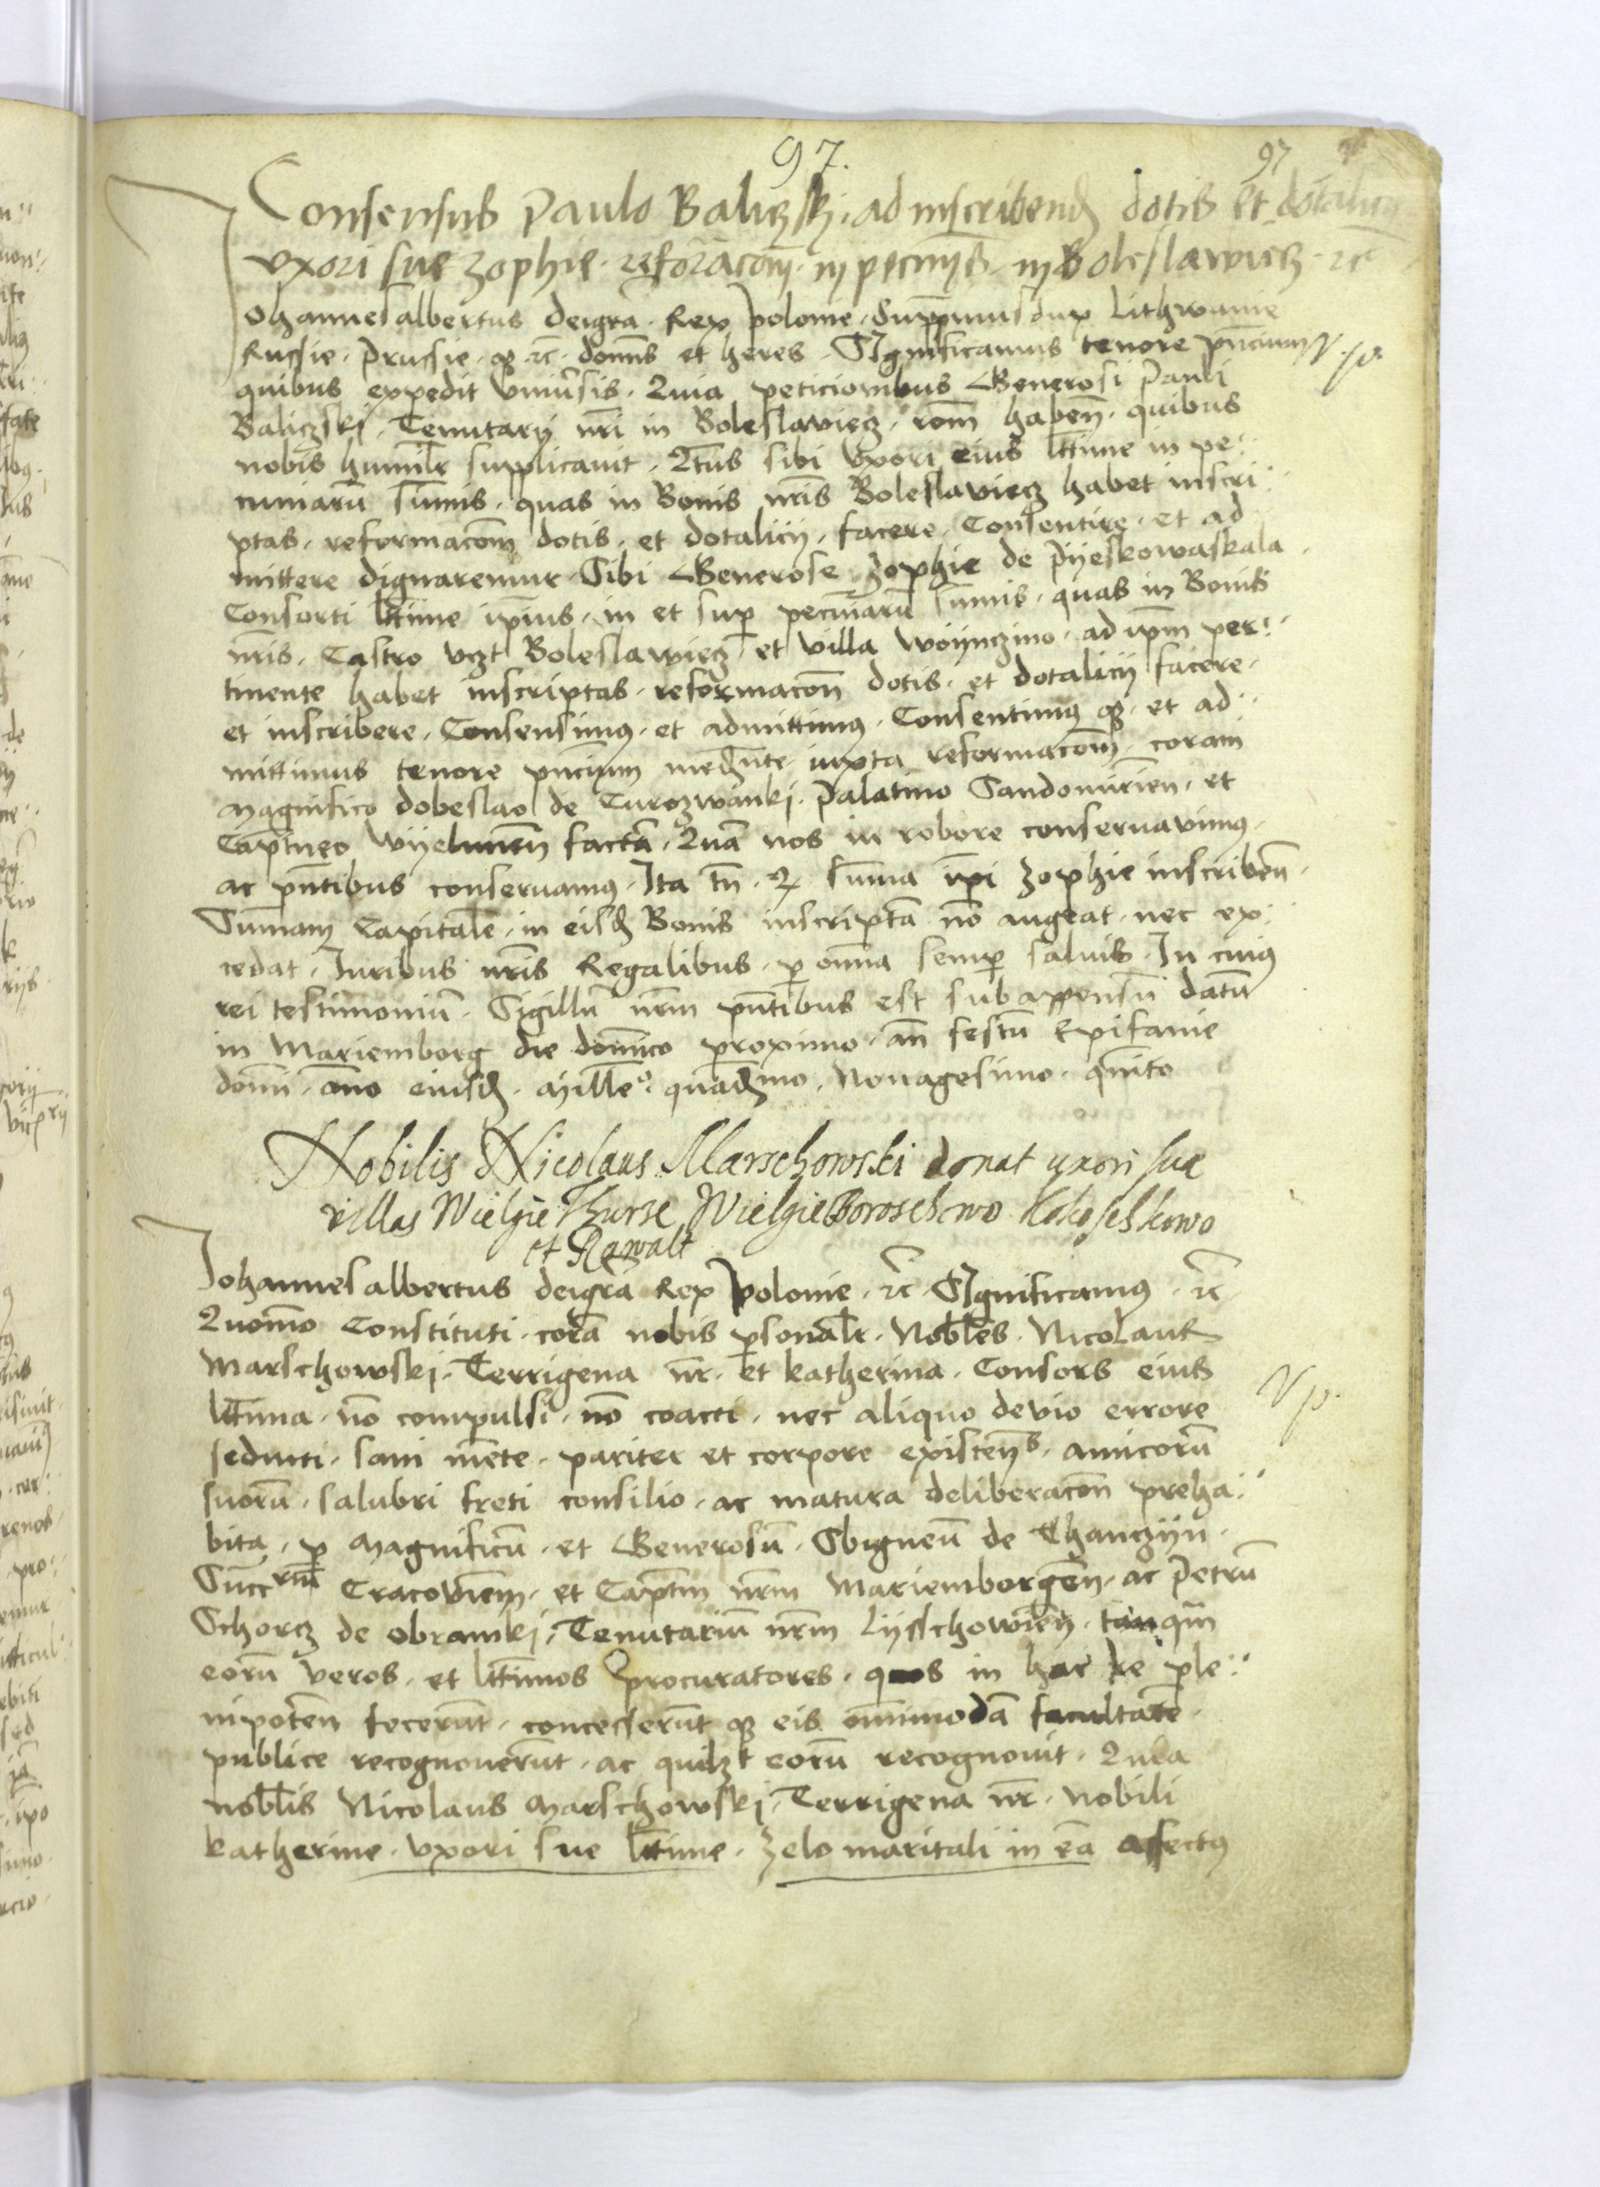 97.
97
Consensus Paulo Baliczski ad inscribend dotis et dotalicij
uxori sue Zophie reformacom in pecunijs in Boleslawiecz etc
Johannes albertus dei gra Rex polonie Supprimus dux Lithwanie
Russie prussie q3 etc domins et heres Significamus tenore pncium
quibus expedit universis Quia peticionibus Generosi Pauli
Baliczski Tenutarij nri in Boleslaviecz rom haben quibus
nobis humilr supplicavit Qtus sibi uxori eius lttime in pe
cuniaru sumis quas in Bonis nris Boleslaviecz habet inscri
ptas reformacom dotis et dotalicij facere Consentire et ad
mittere dignaremur Sibi Generose Zophie de Pijeskowaskala
Consorti lttime ipius in et sup pecuniaru sumis quas in Bonis
nris Castro vczt Boleslawiecz et villa Woijnczino ad ipm per
tinente habet inscriptas reformacon dotis et dotalicij facere
et inscribere Consensimus et admittimus Consentimus q3 et ad
mittimus tenore pncium mediante iuxta reformacom coram
magnifico dobeslao de Curozwanki Palatino Sandomirien et
Captneo Wijelunen facta Qua nos in robore conservavimus
ac pntibus conservamus Ita tn q summa ipi Zophie inscriben
Sumam Capitale in eisd Bonis inscripta no augeat nec ex
cedat Juribus nris Regalibus p omnia semp salvis In cuius
rei testimoniu Sigillu nrm pntibus est subappensu datu
in Mariemborg die domico proximo an festu Epifanie
domi ano eiusd Mille quadmo Nonagesimo quinto
Nobilis Nicolaus Marschowski donat uxori sua
villas Wielgie Thurse Wielgie Boroschowo Kokoschkowo
et Rawalt
Johannes albertus dei gra Rex polonie etc Significamus etc
Quomo Constituti cora nobis psonalr Nobles Nicolaus
Marschowski Terrigena nr et Katherina Consors eius
lttima no compulsi no coacti nec aliquo devio errore
seducti sani mete pariter et corpore existens amicoru
suoru salubri freti consilio ac matura deliberacon preha
bita p Magnificu et Generosu Sbigneu de Thanczijn
Succriu Cracovien et Captm nrm Mariemborgen ac Petru
Schorcz de obramki Tenutariu nrm Lijsschowien tanqm
eoru veros et lttimos procuratores quos in hac re ple
nipoten fecerut concesserut q3 eis omimoda facultate
publice recognoverut ac quilzt eoru recognovit Quia
noblis Nicolaus Marschowski Terrigena nr nobili
Katherine uxori sue lttime zelo maritali in ea affectus